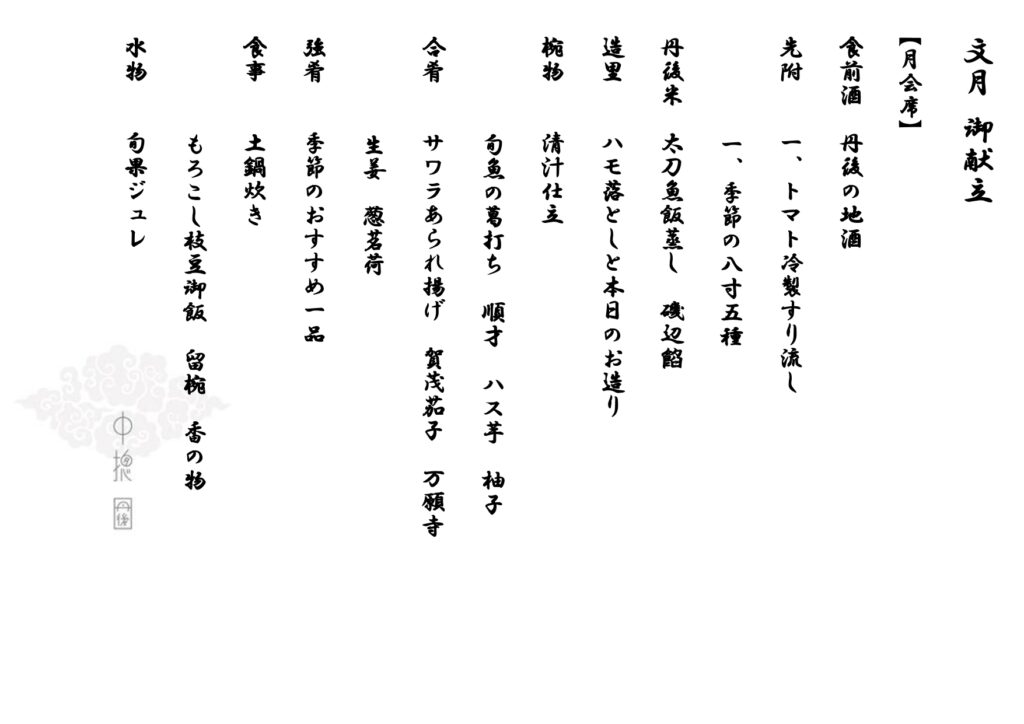 文月 御献立
【月会席】
食前酒 丹後の地酒
先附 一、トマト冷製すり流し
一、季節の八寸五種
丹後米 太刀魚飯蒸し 磯辺餡
造里 ハモ落としと本日のお造り
椀物 清汁仕立
旬魚の葛打ち 順才 ハス芋 柚子
合肴 サワラあられ揚げ 賀茂茄子 万願寺
生姜 葱茗荷
強肴 季節のおすすめ一品
食事 土鍋炊き
もろこし枝豆御飯 留椀 香の物
水物 旬果ジュレ
中總
丹後